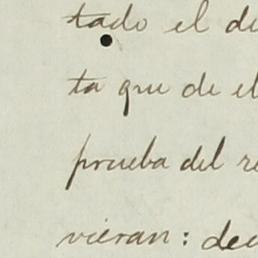 tado el di
ta que de el
prueba del re
vieran: dec